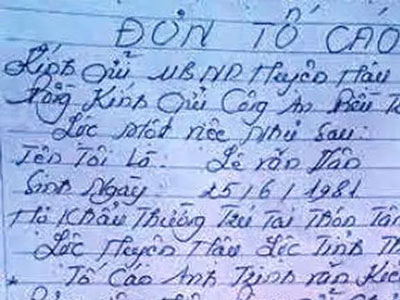 ĐƠN TỐ CÁO
Kính Gửi UBND Huyện Hậu
Đồng Kính Gửi Công An
Lộc một việc Như Sau:
Tên Tôi Là: Lê Văn
Sinh Ngày 15/6/1981
Hộ Khẩu Thường Trú Tại Thôn Tân
Lộc Huyện Hậu Lộc Tỉnh Th
* Tố Cáo Anh Trịnh Văn Kiê